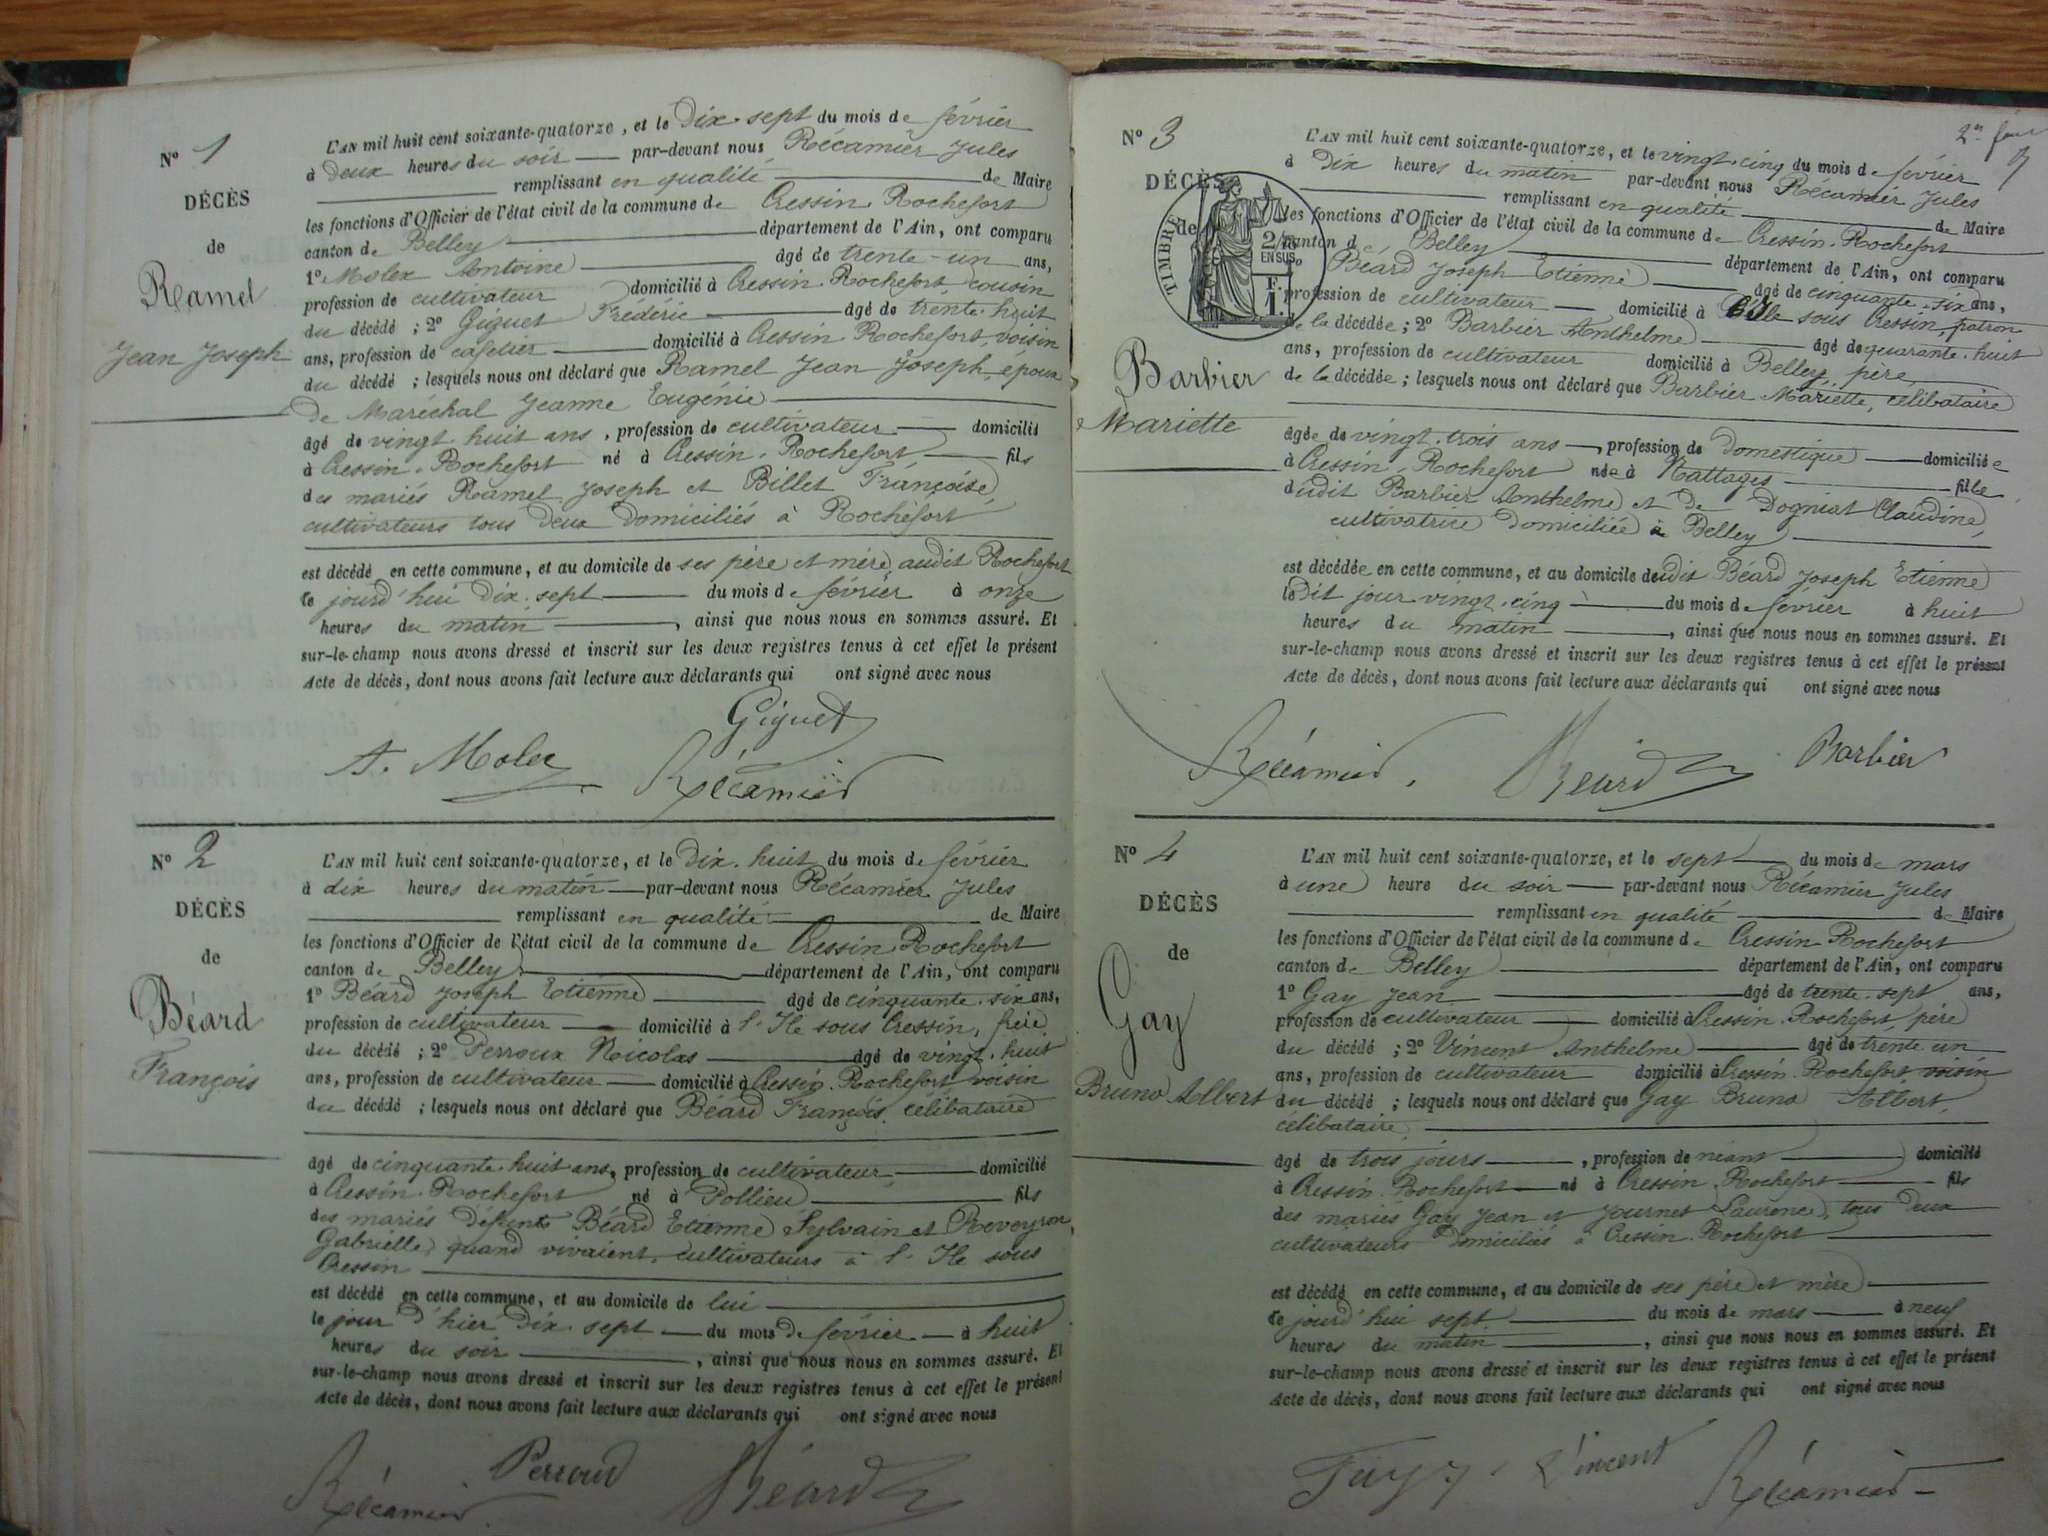 N° 1
DÉCÈS
de
Ramel
Jean Joseph
L'AN mil huit cent soixante-quatorze, et le Dix-sept du mois de février
à Deux heures du soir — par-devant nous Récamier Jules
remplissant en qualité de Maire
les fonctions d'Officier de l'état civil de la commune de Cressin-Rochefort
canton de Belley département de l'Ain, ont comparu
1° Molex Antoine âgé de trente-un ans,
profession de cultivateur domicilié à Cressin-Rochefort, cousin
du décédé ; 2° Giguet Frédéric âgé de trente-huit
ans, profession de cafetier domicilié à Cressin Rochefort, voisin
du décédé ; lesquels nous ont déclaré que Ramel Jean Joseph, époux
de Maréchal Jeanne Eugénie
âgé de vingt-huit ans, profession de cultivateur domicilié
à Cressin-Rochefort né à Cressin-Rochefort fils
des mariés Ramel Joseph et Billet Françoise,
cultivateurs tous deux domiciliés à Rochefort
est décédé en cette commune, et au domicile de ses père et mère, audit Rochefort
le jourd'hui Dix-sept du mois de février à onze
heures du matin, ainsi que nous nous en sommes assuré. Et
sur-le-champ nous avons dressé et inscrit sur les deux registres tenus à cet effet le présent
Acte de décès, dont nous avons fait lecture aux déclarants qui ont signé avec nous
Giguet
A. Molex Récamier
N° 2
DÉCÈS
de
Béard
François
L'AN mil huit cent soixante-quatorze, et le Dix-huit du mois de février
à dix heures du matin — par-devant nous Récamier Jules
remplissant en qualité de Maire
les fonctions d'Officier de l'état civil de la commune de Cressin-Rochefort
canton de Belley département de l'Ain, ont comparu
1° Béard Joseph Etienne âgé de cinquante-six ans,
profession de cultivateur domicilié à l'Ile sous Cressin, frère
du décédé ; 2° Perroux Nicolas âgé de vingt-huit
ans, profession de cultivateur domicilié à Cressin-Rochefort voisin
du décédé ; lesquels nous ont déclaré que Béard François, célibataire
âgé de cinquante-huit ans, profession de cultivateur domicilié
à Cressin-Rochefort né à Pollieu fils
des mariés défunts Béard Etienne Sylvain et Reveyron
Gabrielle, quand vivaient, cultivateurs à l'Ile sous
Cressin
est décédé en cette commune, et au domicile de lui
le jour d'hier Dix-sept du mois de février à huit
heures du soir, ainsi que nous nous en sommes assuré. Et
sur-le-champ nous avons dressé et inscrit sur les deux registres tenus à cet effet le présent
Acte de décès, dont nous avons fait lecture aux déclarants qui ont signé avec nous
Récamier Perroud Béard
N° 3
DÉCÈS
de
TIMBRE
2/10
EN SUS
F.
1.
Barbier
Mariette
L'AN mil huit cent soixante-quatorze, et le vingt-cinq du mois de février
à Dix heures du matin par-devant nous Récamier Jules
remplissant en qualité de Maire
les fonctions d'Officier de l'état civil de la commune de Cressin-Rochefort
canton de Belley département de l'Ain, ont comparu
Béard Joseph Etienne âgé de cinquante-six ans,
profession de cultivateur domicilié à sous Cressin, patron
de la décédée ; 2° Barbier Anthelme âgé de quarante-huit
ans, profession de cultivateur domicilié à Belley, père
de la décédée ; lesquels nous ont déclaré que Barbier Mariette, célibataire
âgée de vingt-trois ans, profession de Domestique domiciliée
à Cressin-Rochefort née à Nattages fille
dudit Barbier Anthelme et de Dogniat Claudine,
cultivatrice domiciliée à Belley
est décédée en cette commune, et au domicile dudit Béard Joseph Etienne
ledit jour vingt-cinq du mois de février à huit
heures du matin, ainsi que nous nous en sommes assuré. Et
sur-le-champ nous avons dressé et inscrit sur les deux registres tenus à cet effet le présent
Acte de décès, dont nous avons fait lecture aux déclarants qui ont signé avec nous
Récamier Béard Barbier
N° 4
DÉCÈS
de
Gay
Bruno Albert
L'AN mil huit cent soixante-quatorze, et le sept du mois de mars
à une heure du soir — par-devant nous Récamier Jules
remplissant en qualité de Maire
les fonctions d'Officier de l'état civil de la commune de Cressin-Rochefort
canton de Belley département de l'Ain, ont comparu
1° Gay Jean âgé de trente-sept ans,
profession de cultivateur domicilié à Cressin-Rochefort, père
du décédé ; 2° Vincent Anthelme âgé de trente-un
ans, profession de cultivateur domicilié à Cressin-Rochefort voisin
du décédé ; lesquels nous ont déclaré que Gay Bruno Albert,
célibataire
âgé de trois jours, profession de néant domicilié
à Cressin-Rochefort né à Cressin-Rochefort fils
des mariés Gay Jean et Journet Laurence, tous deux
cultivateurs domiciliés à Cressin-Rochefort
est décédé en cette commune, et au domicile de ses père et mère
le jourd'hui sept du mois de mars à neuf
heures du matin, ainsi que nous nous en sommes assuré. Et
sur-le-champ nous avons dressé et inscrit sur les deux registres tenus à cet effet le présent
Acte de décès, dont nous avons fait lecture aux déclarants qui ont signé avec nous
Gay Vincent Récamier